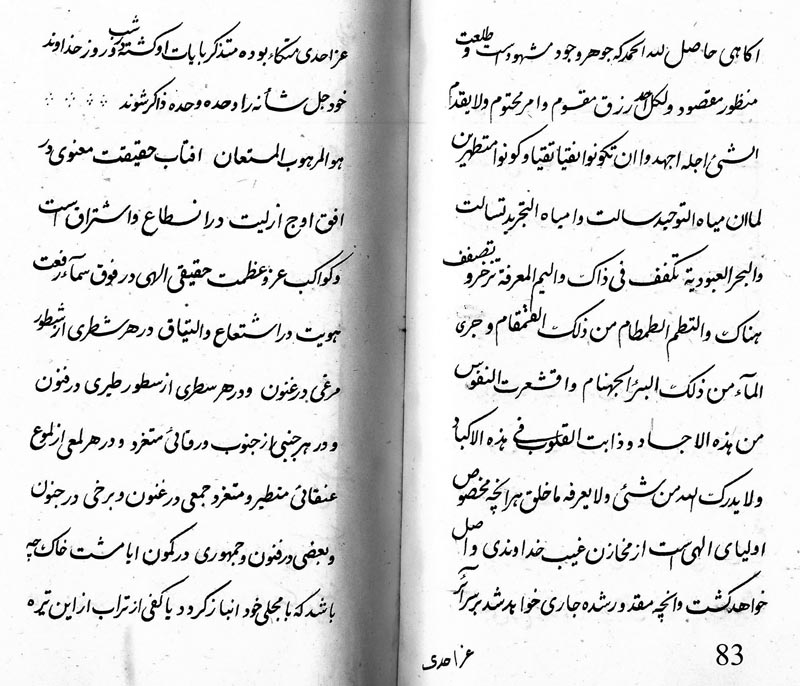 اکاهی حاصل لله الحمد که جوهر وجود مشهود است و طلعت
منظور مقصود و لکل احد رزق مقسوم و امر محتوم و لا یقدم
الشیئ اجله اجهدوا ان تکونوا نقیا تقیا و کونوا متطهرین
لما ان میاه التوحید سالت و امیاه التجرید تسالت
والبحر العبودیة تکفف فی ذاک والیم المعرفة تزخر و تصفف
هناک والتطم الطمطام من ذلک القمقام و جری
المآء من ذلک البئر الجهنام و اقشعرت النفوس
من هذه الاجساد و ذابت القلوب فی هذه الاکباد
و لا یدرک الله من شئی و لا یعرفه ما خلق هرانچه مخصوص
اولیای الهی است از مخازن غیب خداوندی واصل
خواهد کشت وانچه مقدور شده جاری خواهد شد بر سرائر
عز احدی
83
عز احدی متکاء بوده متذکر بایات او کشته در شب و روز خداوند
خود جل شأنه را وحده وحده ذاکر شوند
هو المرهوب المستعان افتاب حقیقت معنوی در
افق اوج ازلیت در انسطاع و استراق است
و کواکب عز و عظمت حقیقی الهی در فوق سمآء رفعت
هویت در استشعاع والتیاق در هر شطری از شطور
مرغی در غنون و در هر سطری از سطور طیری در فنون
و در هر جنبی از جنوب ورقائی متغرد و در هر لمعی از لموع
عنقائی متطیر و متغرد جمعی در غنون و برخی در جنون
و بعضی در فنون و جمهوری در کمون ایا مشت خاک چه
باشد که با مجلی خود انباز کردد یا کفی از تراب از این تیره